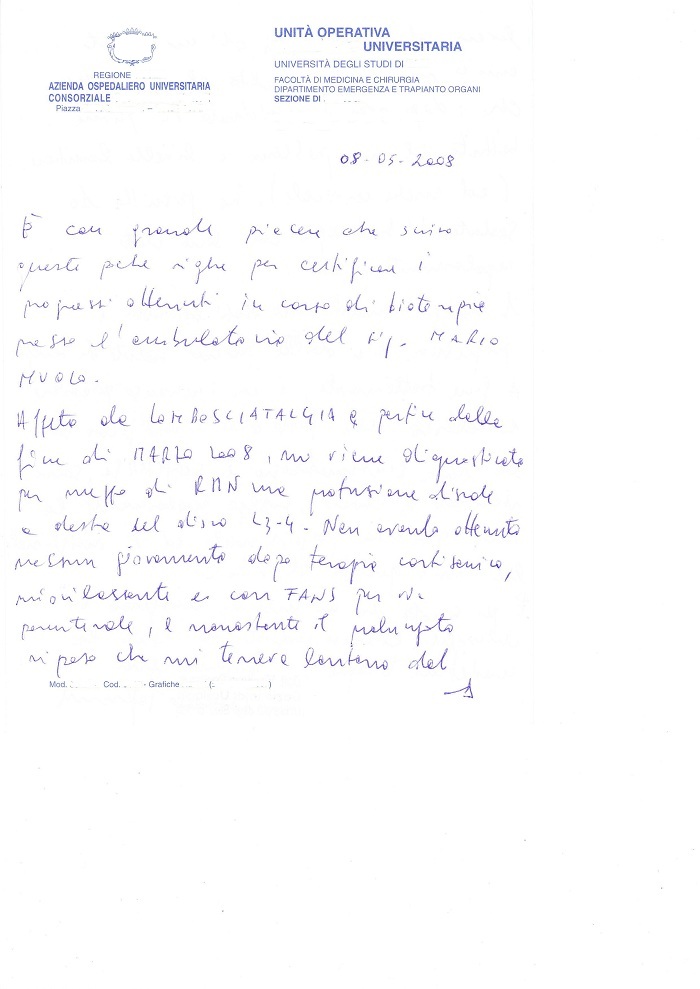 UNITÀ OPERATIVA
UNIVERSITARIA
UNIVERSITÀ DEGLI STUDI DI
FACOLTÀ DI MEDICINA E CHIRURGIA
DIPARTIMENTO EMERGENZA E TRAPIANTO ORGANI
SEZIONE DI
REGIONE
AZIENDA OSPEDALIERO UNIVERSITARIA
CONSORZIALE
Piazza
08-05-2008
È con grande piacere che scrivo
queste poche righe per certificare i
progressi ottenuti in corso di bioterapia
presso l'ambulatorio del Sig. MARIO
MUOLO.
Affetto da LOMBOSCIATALGIA a partire dalla
fine di MARZO 2008, mi viene diagnosticata
per mezzo di RMN una protusione discale
a destra del disco L3-4. Non avendo ottenuto
nessun giovamento dopo terapia cortisonica,
miorilassante e con FANS per via
parenterale, e nonostante il prolungato
riposo che mi teneva lontano dal
Mod. Cod. - Grafiche ( )